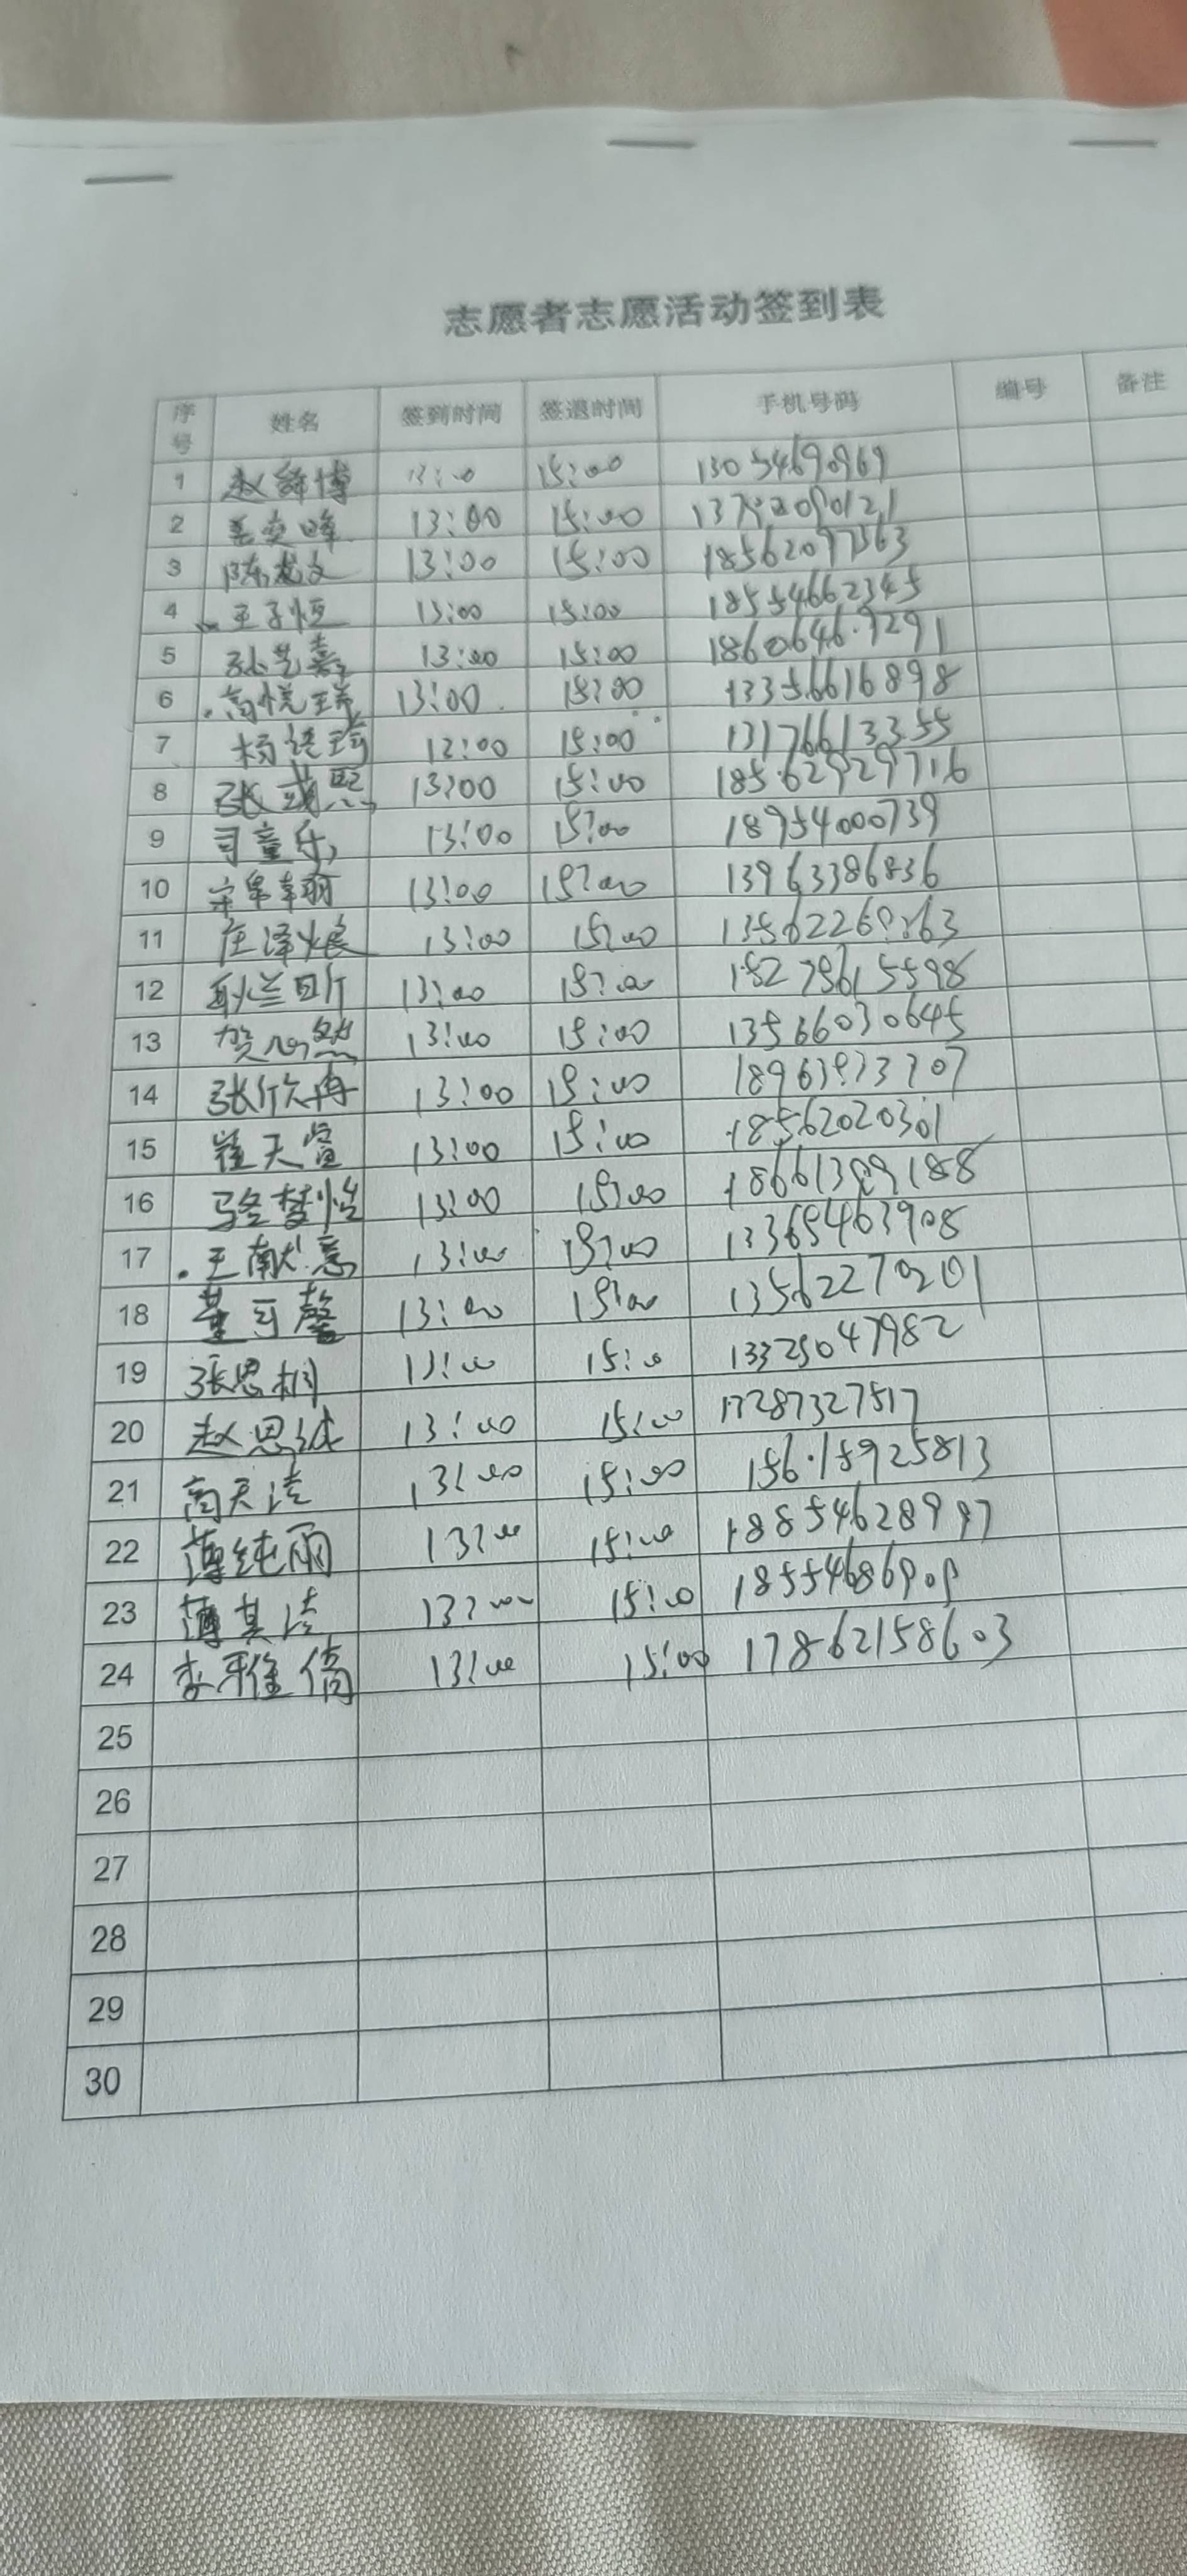 志愿者志愿活动签到表
序号 姓名 签到时间 签退时间 手机号码 编号 备注
1 赵舒博 13:00 15:00 13054690969
2 13:00 15:00
3 陈龙文 13:00 15:00 18562097363
4 王子恒 13:00 15:00 18554662345
5 孙艺嘉 13:00 15:00 18606469291
6 高悦 13:00 15:00 13356616898
7 杨 12:00 15:00 13176613355
8 张 13:00 15:00 18562929716
9 司童乐 13:00 15:00 18954000739
10 13:00 15:00 13963386836
11 庄泽 13:00 15:00
12 13:00 15:00
13 贺心然 13:00 15:00 13566030645
14 张欣冉 13:00 15:00
15 崔天萱 13:00 15:00 18562020301
16 骆梦怡 13:00 15:00
17 王献意 13:00 15:00 13365463908
18 董可馨 13:00 15:00 13562270201
19 张思桐 13:00 15:00 13325047982
20 赵思诚 13:00 15:00 17287327517
21 高天洁 13:00 15:00 15615925813
22 薄纯雨 13:00 15:00 18854628997
23 薄其洁 13:00 15:00
24 李雅倩 13:00 15:00 17862158603
25
26
27
28
29
30